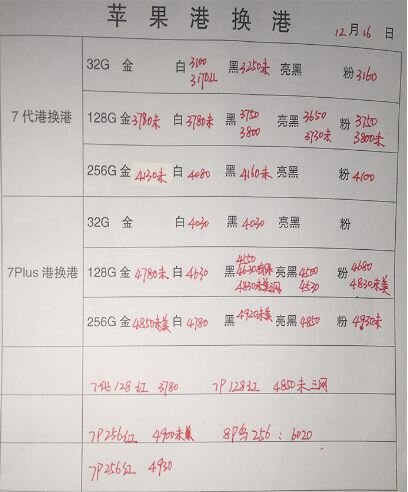 苹果港换港
12月16日
32G 金 白 3100 黑 3250未 亮黑 粉 3160
3170LL
7代港换港
128G 金 3780未 白 3780未 黑 3750 亮黑 3650 粉 3750
3800 3730未 3800未
256G 金 4130未 白 4080 黑 4160未 亮黑 粉 4100
32G 金 白 4030 黑 4030 亮黑 粉
7Plus 港换港
4550
128G 金 4780未 白 4630 黑 4630 亮黑 4500 粉 4680
4830未 4530 4830未美
256G 金 4850未美 白 4780 黑 4920未美 亮黑 4850 粉 4930未
7代128红 3780 7P128红 4850未三网
7P256红 4900未美 8P 256：6020
7P256红 4930